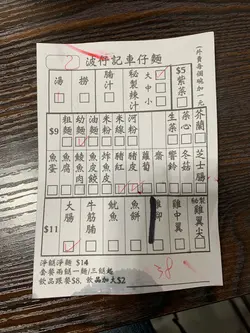 波仔記車仔麵
(外賣每個碗加一元)
湯 撈 腩汁 秘製辣汁 大 中 小 $5 紫菜
$9 粗麵 幼麵 油麵 米粉 米線 河粉 生菜 菜心 芥蘭
魚蛋 魚腐 魚皮餃 魚片 豬紅 豬皮 蘿蔔 齋 響鈴 冬菇 芝士腸
$11 大腸 牛筋腩 魷魚 魚餅 雞中翼 秘製雞翼尖
淨餸淨麵 $14
套餐兩餸一麵/三餸起
飲品跟餐$8, 飲品加大$2
38